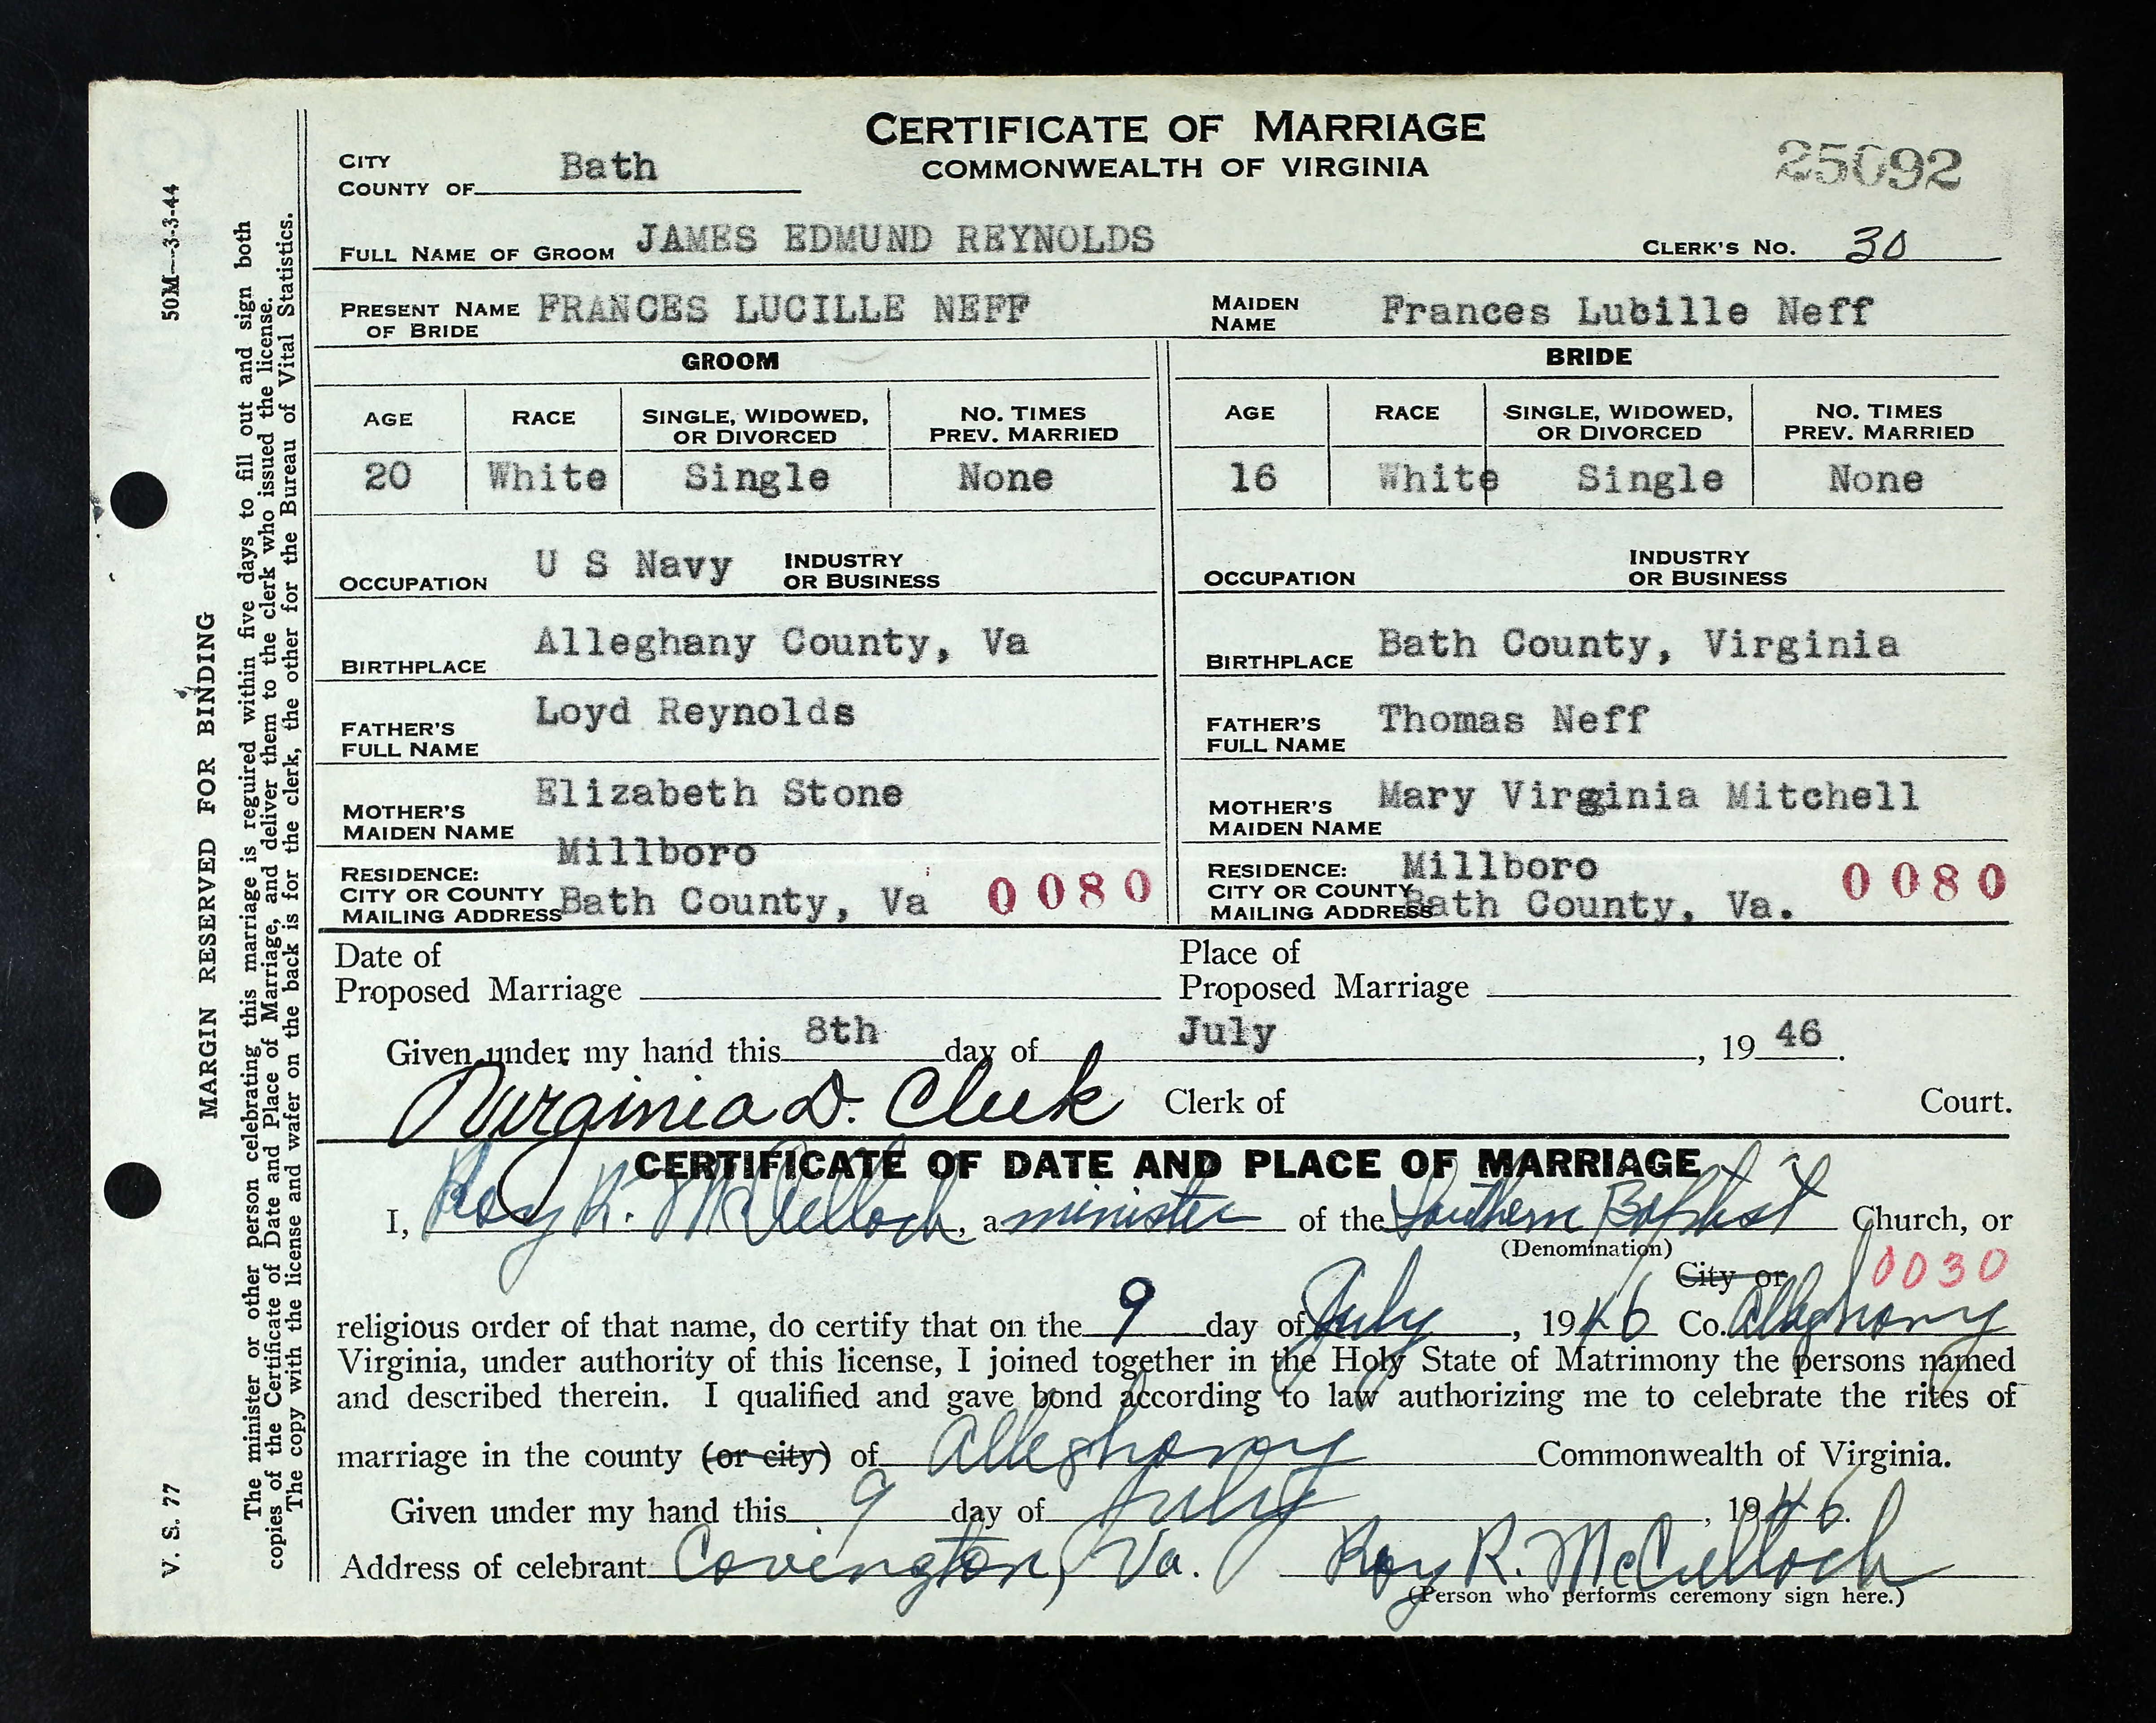 CERTIFICATE OF MARRIAGE
COMMONWEALTH OF VIRGINIA
25092
CITY
COUNTY OF Bath
FULL NAME OF GROOM JAMES EDMUND REYNOLDS CLERK'S NO. 30
PRESENT NAME OF BRIDE FRANCES LUCILLE NEFF MAIDEN NAME Frances Lubille Neff
GROOM BRIDE
AGE RACE SINGLE, WIDOWED, OR DIVORCED NO. TIMES PREV. MARRIED AGE RACE SINGLE, WIDOWED, OR DIVORCED NO. TIMES PREV. MARRIED
20 White Single None 16 White Single None
OCCUPATION U S Navy INDUSTRY OR BUSINESS OCCUPATION INDUSTRY OR BUSINESS
BIRTHPLACE Alleghany County, Va BIRTHPLACE Bath County, Virginia
FATHER'S FULL NAME Loyd Reynolds FATHER'S FULL NAME Thomas Neff
MOTHER'S MAIDEN NAME Elizabeth Stone MOTHER'S MAIDEN NAME Mary Virginia Mitchell
RESIDENCE: Millboro RESIDENCE: Millboro
CITY OR COUNTY MAILING ADDRESS Bath County, Va 0080 CITY OR COUNTY MAILING ADDRESS Bath County, Va. 0080
Date of Place of
Proposed Marriage Proposed Marriage
Given under my hand this 8th day of July, 19 46.
Virginia D. Cleek Clerk of Court.
CERTIFICATE OF DATE AND PLACE OF MARRIAGE
I, Roy R. McCulloch, a minister of the Southern Baptist Church, or
(Denomination)
City or 0030
religious order of that name, do certify that on the 9 day of July, 1946 Co. Alleghany
Virginia, under authority of this license, I joined together in the Holy State of Matrimony the persons named
and described therein. I qualified and gave bond according to law authorizing me to celebrate the rites of
marriage in the county (or city) of Alleghany Commonwealth of Virginia.
Given under my hand this 9 day of July, 1946.
Address of celebrant Covington, Va. Roy R. McCulloch
(Person who performs ceremony sign here.)
50M—3-3-44
MARGIN RESERVED FOR BINDING
V. S. 77
The minister or other person celebrating this marriage is required within five days to fill out and sign both
copies of the Certificate of Date and Place of Marriage, and deliver them to the clerk who issued the license.
The copy with the license and wafer on the back is for the clerk, the other for the Bureau of Vital Statistics.